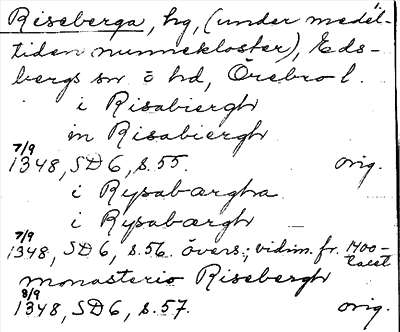 Riseberga, hg, (under medel-
tiden nunnekloster), Eds-
bergs sn o hd, Örebro l.
i Risabiergh
in Risabiergh
7/9
1348, SD 6, s. 55. orig.
i Rysabærgha
i Rysabærgh
7/9
1348, SD 6, s. 56. övers.; vidim. fr. 1400-talet
monasterio Risebergh
8/9
1348, SD 6, s. 57. orig.